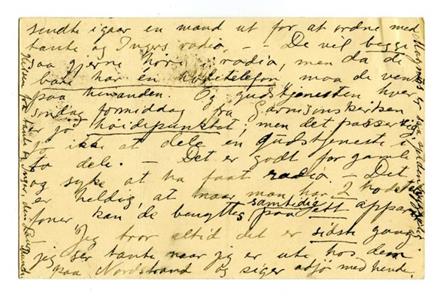 sendte igaar en mand ut for at ordne med
tante og Ingers radio. - De vil begge
saa gjerne høre radio, men da de
bare har én hodetelefon, maa de vente
paa hinanden. Og gudstjenesten hver
søndag formiddag fra Garnisonskirken
er jo høidepunktet, men det passer sig
jo ikke at dele en gudstjeneste i
to dele. - Det er godt for gamle
og syke at ha faat radio - Det
er heldig at naar man har 2 hodetele-
foner kan de benyttes samtidig paa ett apparat.
Jeg tror altid det er sidste gang
jeg ser tante naar jeg er ute hos dem
paa Nordstrand og siger adjø med hende.
Hilsen fra tante og Inger